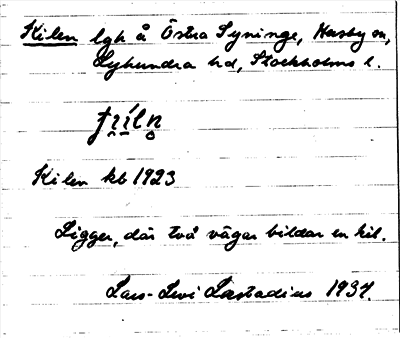 Kilen lgh å Östra Syninge, Husby sn,
Lyhundra hd, Stockholms l.
Kilen kb 1923
Ligger, där två vägar bildar en kil.
Lars-Levi Læstadius 1937.